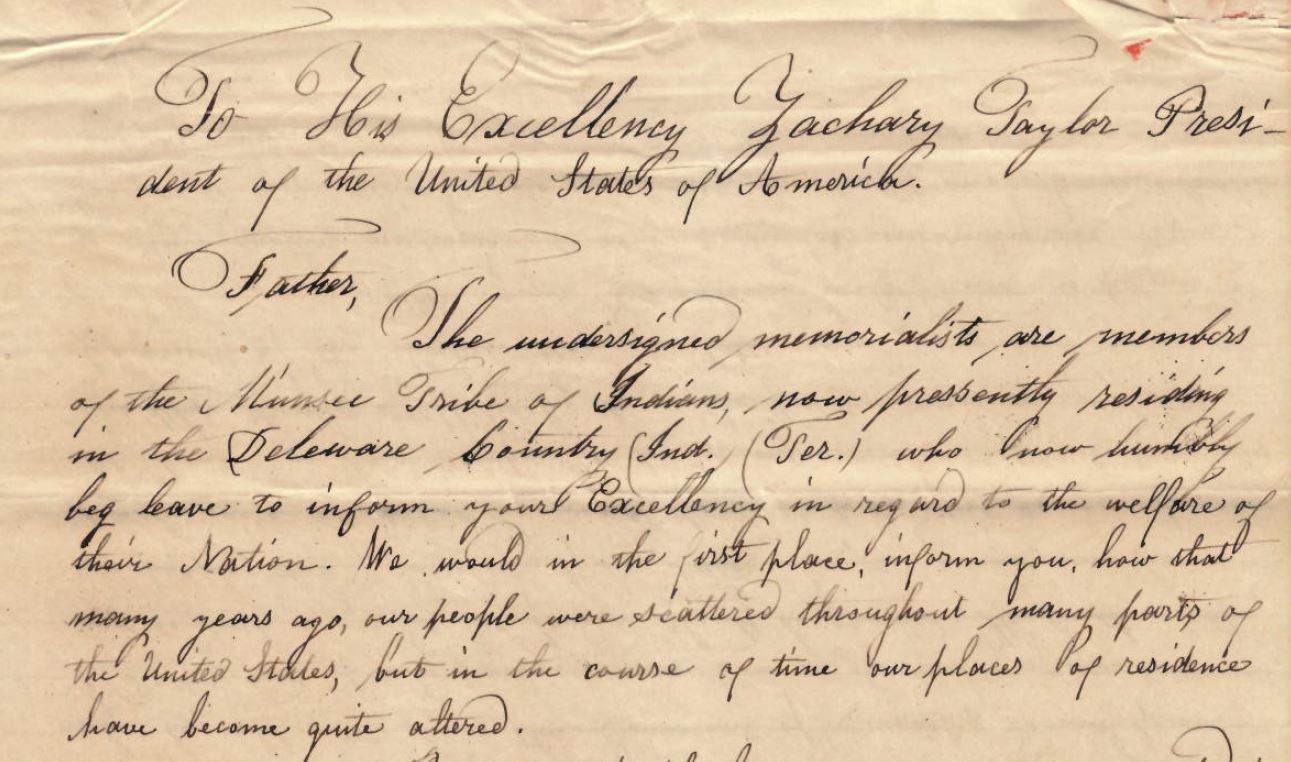 To His Excellency Zachary Taylor Presi-
dent of the United States of America.
Father,
The undersigned memorialists are members
of the Munsee Tribe of Indians, now pressently residing
in the Deleware Country (Ind. (Ter.) who now humbly
beg leave to inform your Excellency in regard to the welfare of
their Nation. We would in the first place, inform you, how that
many years ago, our people were scattered throughout many parts of
the United States, but in the course of time our places of residence
have become quite altered.